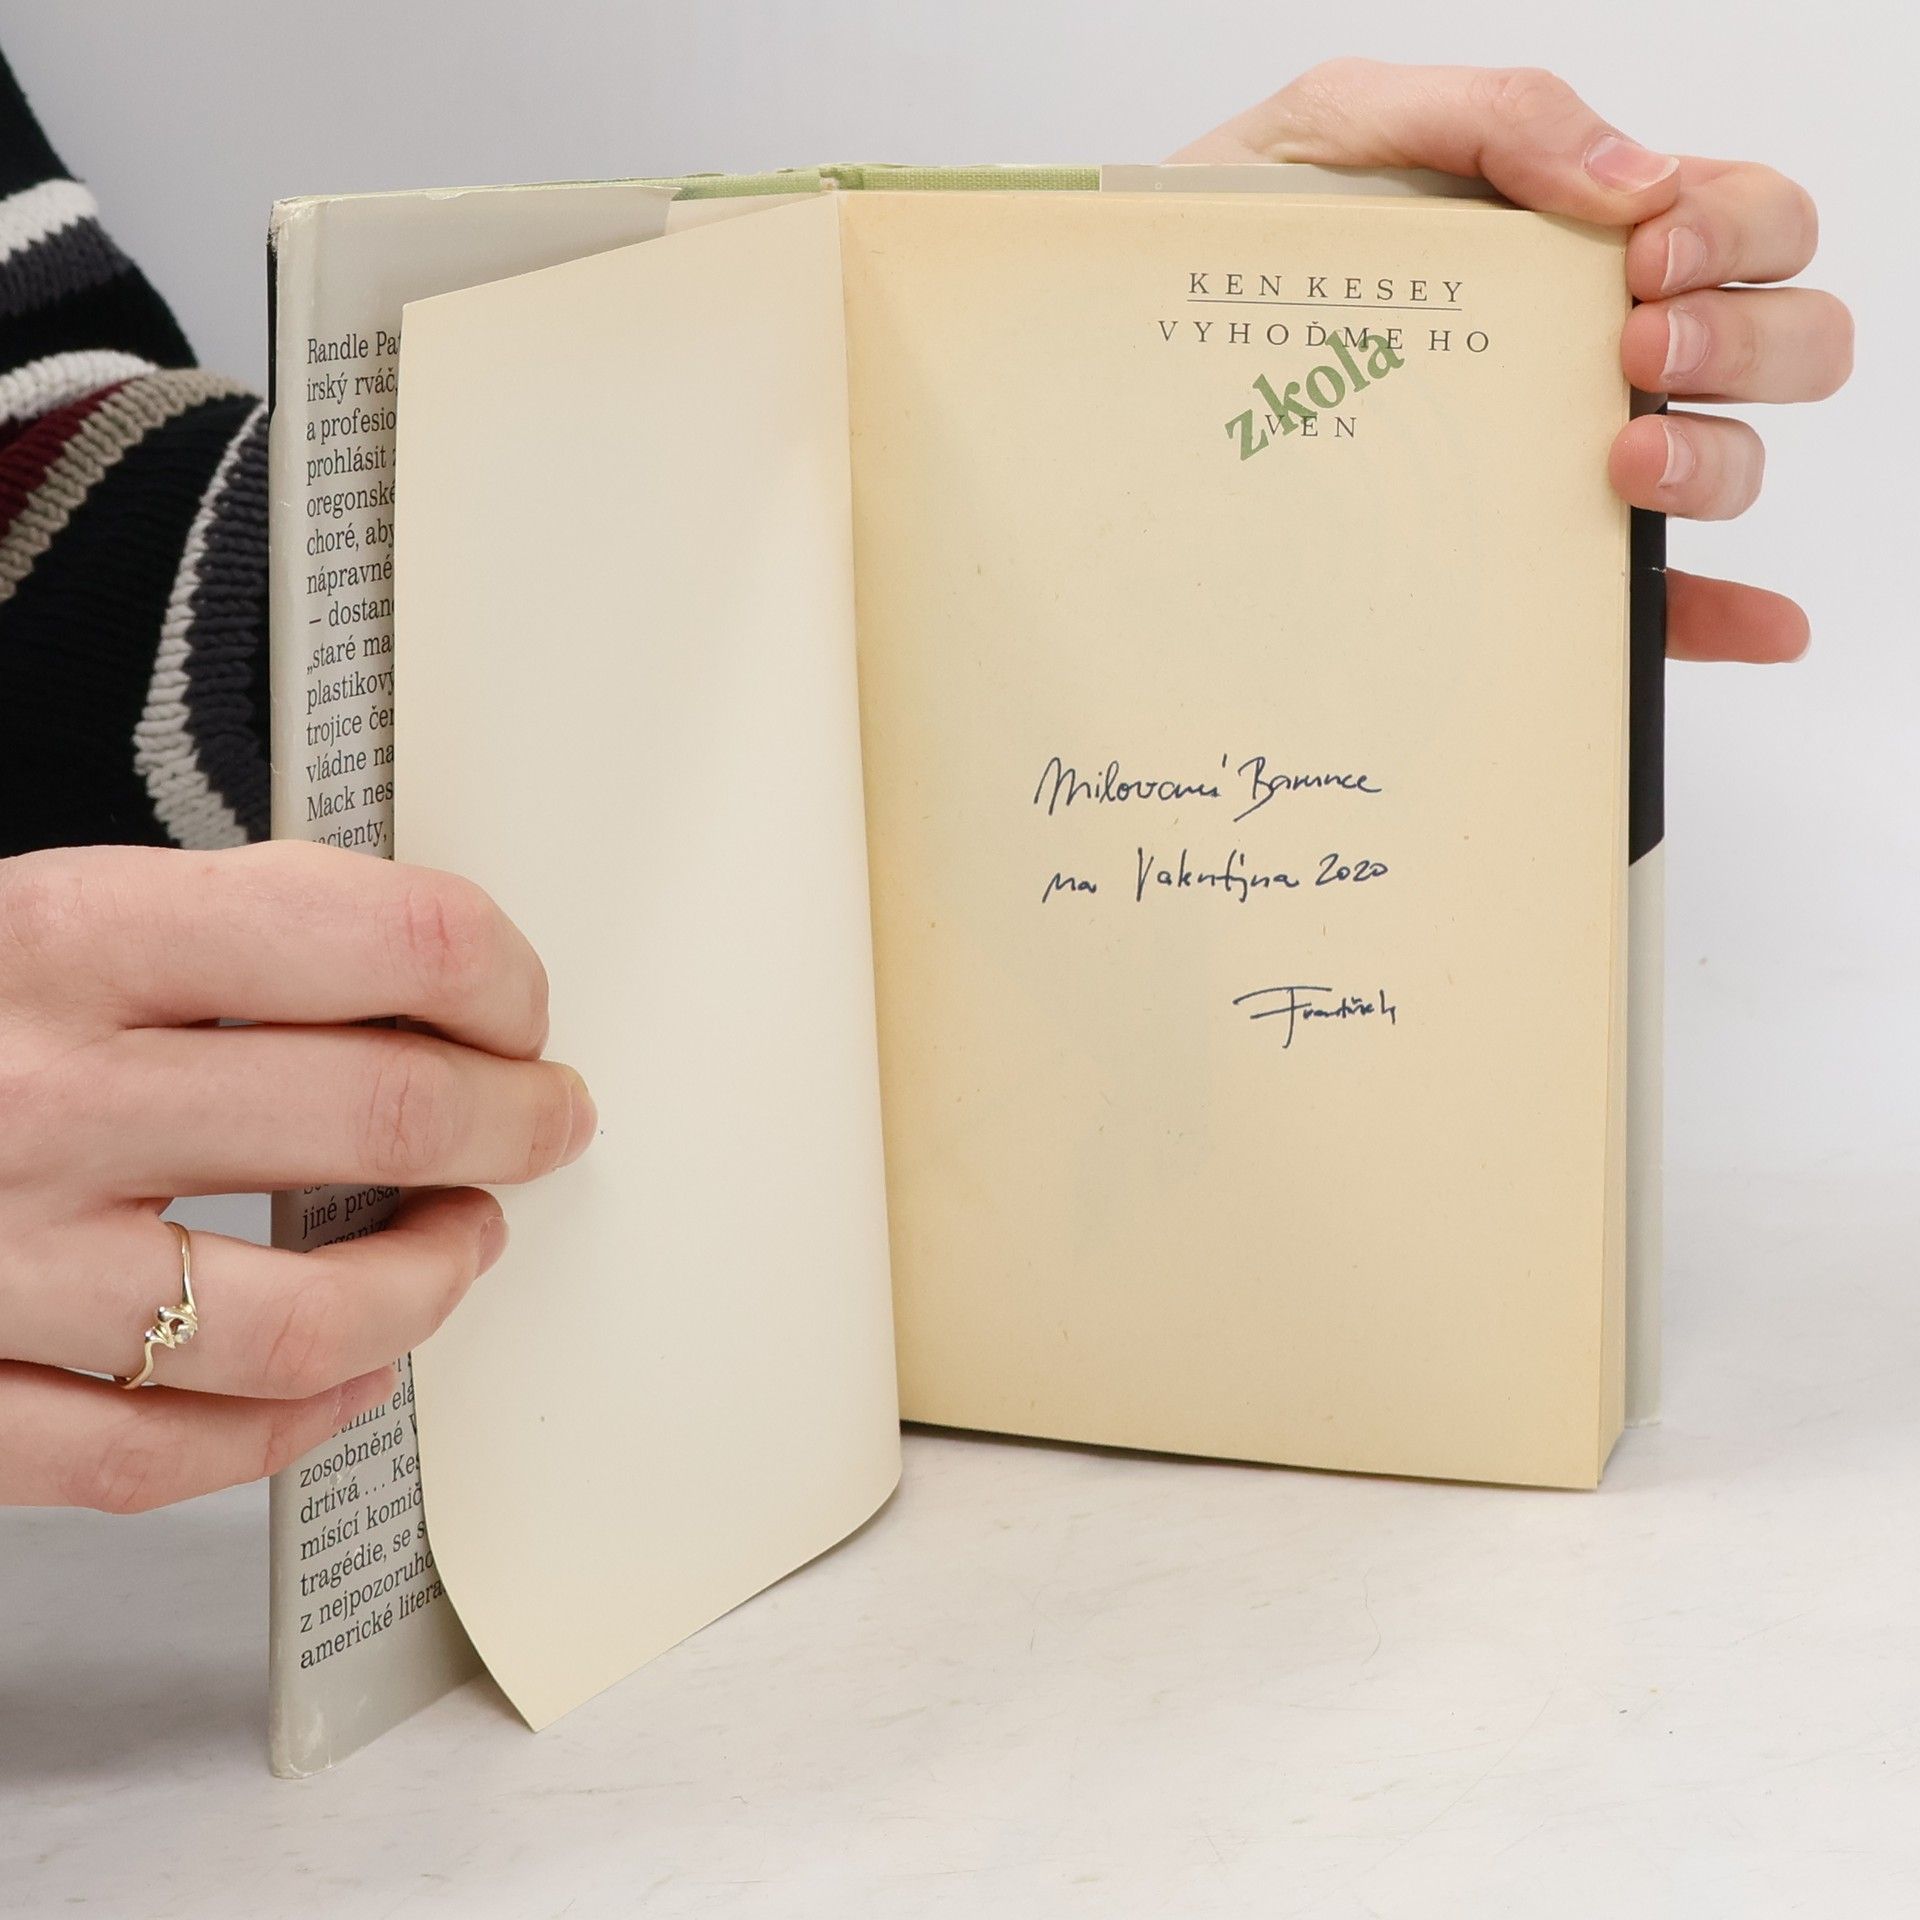 Randle Pat
irský rváč,
a profesio
prohlásit z
oregonské
choré, aby
nápravné
– dostan
„staré ma
plastikový
trojice čer
vládne na
Mack nes
pacienty,
jiné prosa
elá
zosobněné V
drtivá... Kes
mísící komič
tragédie, se s
z nejpozoruho
americké litera
KEN KESEY
VYHOĎME HO
zkola
VEN
Milované Barunce
na Valentýna 2020
František